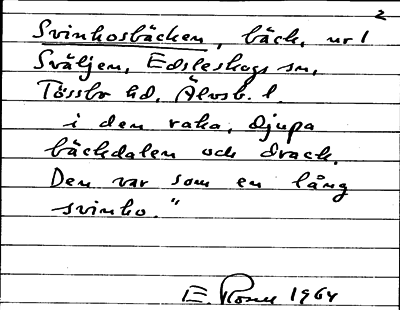 2
Svinhosbäcken, bäck, nr 1
Sväljen, Edsleskogs sn,
Tössbo hd, Älvsb. l.
i den raka, djupa
bäckdalen och drack.
Den var som en lång
svinho."
E. 1964